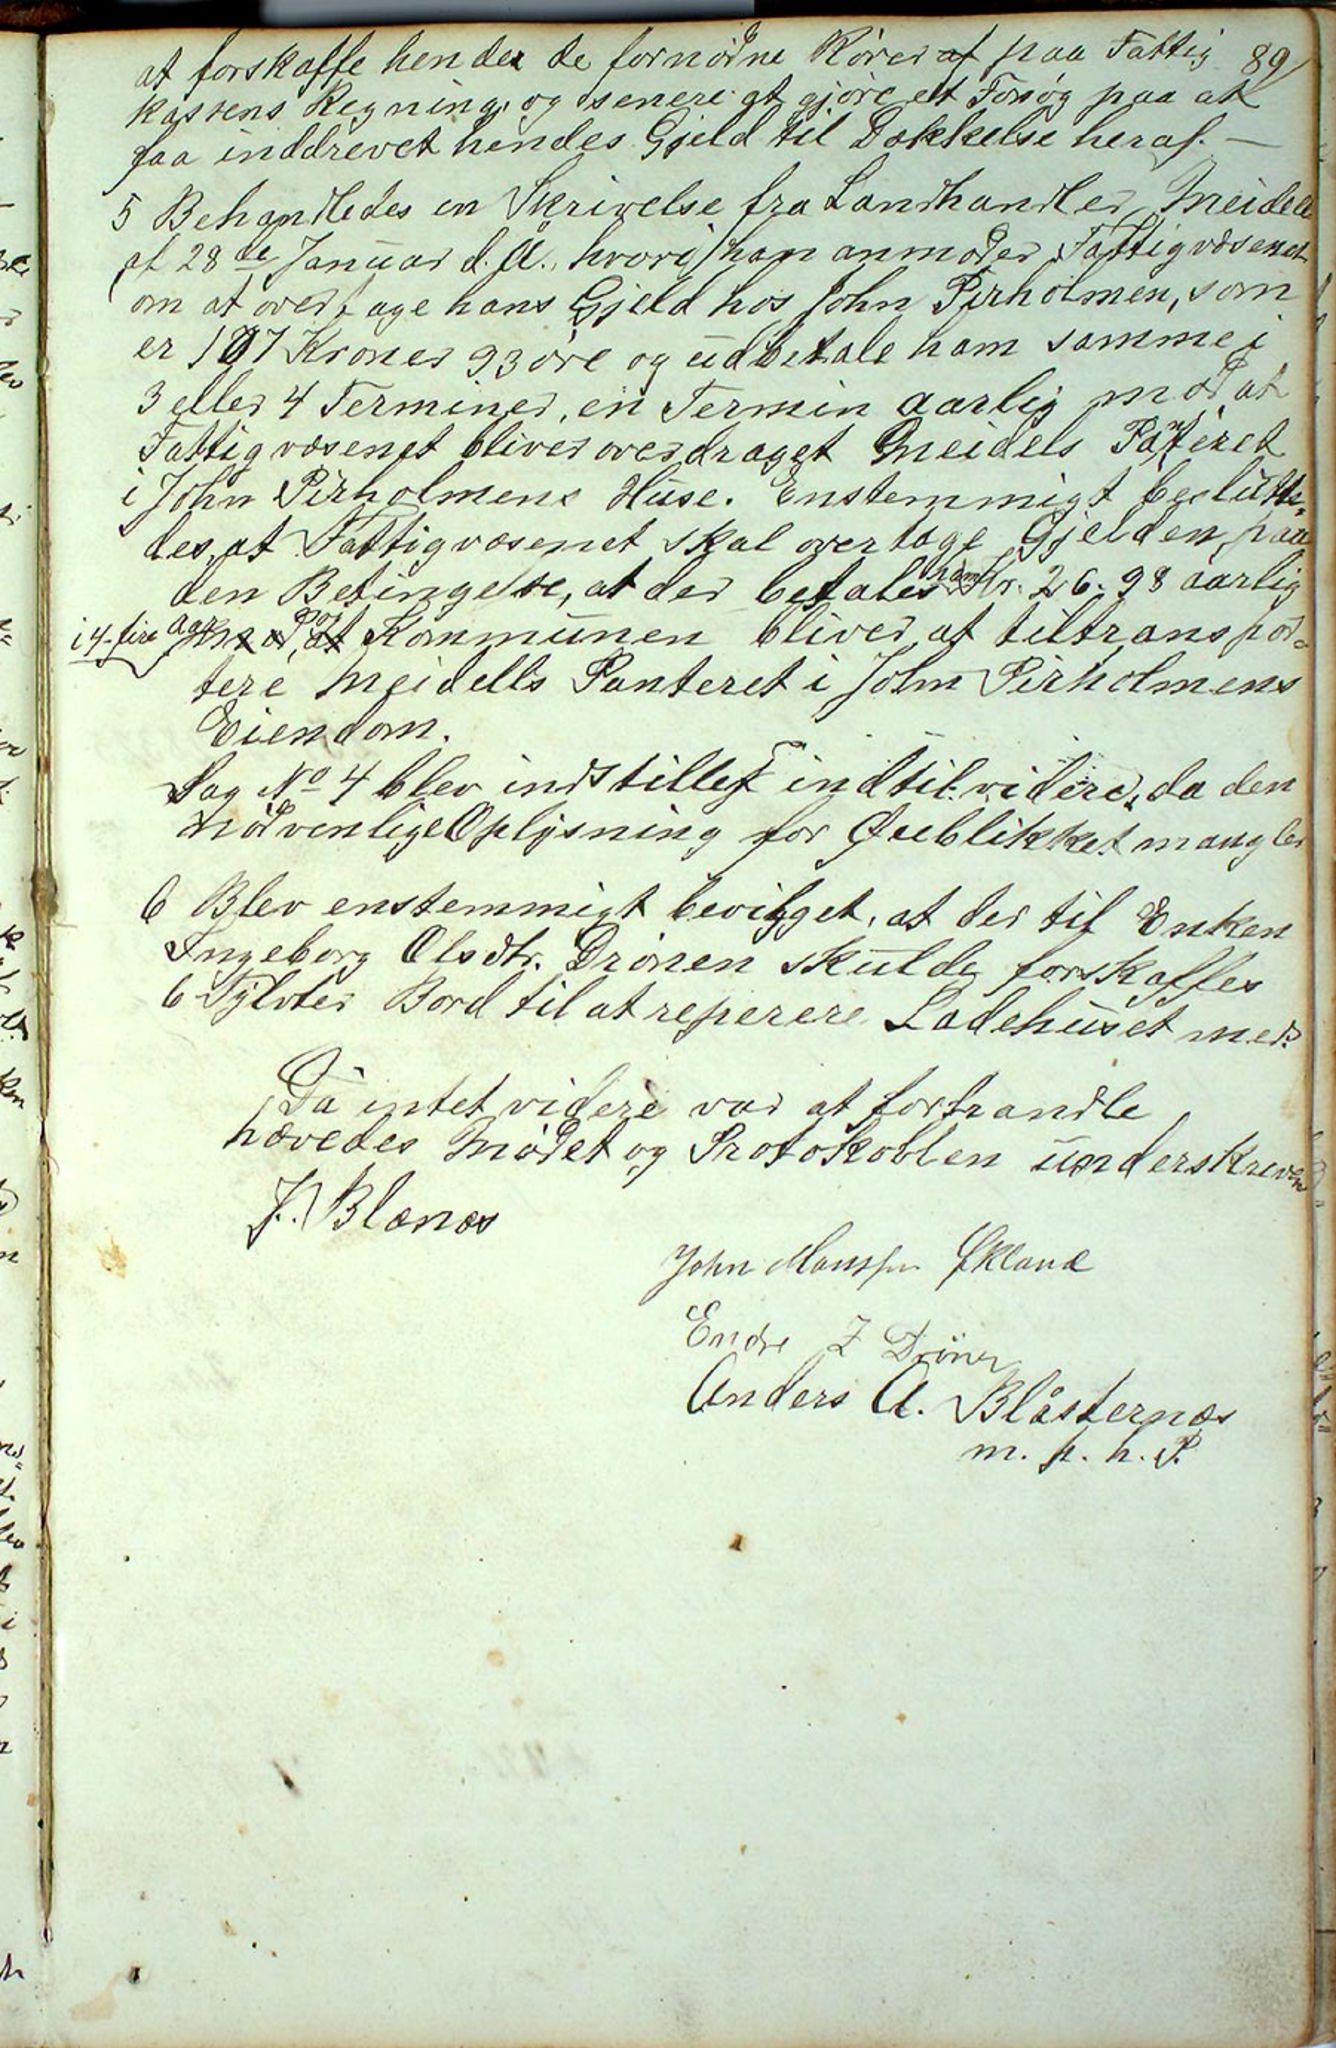 89
at forskaffe hender de fornödne Körer af paa Fattig
kassens Regning, og senere at gjöre et Forsög paa at
faa inddrevet hendes Gjeld til Dækkelse heraf. —
5 Behandledes en Skrivelse fra Landhandler Meidell
af 28de Januar d. A., hvori han anmoder Fattigvæsenet
om at overtage hans Gjeld hos John Pirholmen, som
er 107 Kroner 93 öre og udbetale ham samme i
3 eller 4 Terminer, en Termin aarlig mod at
Fattigvæsenet bliver overdraget Meidels Panteret
i John Pirholmens Huse. Enstemmigt beslutte=
des, at Fattigvæsenet skal overtage Gjelden, paa
den Betingelse, at der betales ham Kr. 26.98 aarlig
i 4 fire Aar mod, at Kommunen bliver at tiltranspor=
tere Meidells Panteret i John Pirholmens
Eiendom.
Sag No 4 blev indstillet indtil videre, da den
nödvenlige Oplysning for Øieblikket mangler
6 Blev enstemmigt bevilget, at der til Enken
Ingeborg Olsdtr. Drönen skulde forskaffes
6 Tylvter Bord til at reperere Ladehuset med.
Da intet videre var at forhandle
hævedes Mödet og Protokollen underskreven
J. Blænæs
John Monssen Økland
Endre Z Drönen
Anders A. Blåsternæs
m. p. h. P.